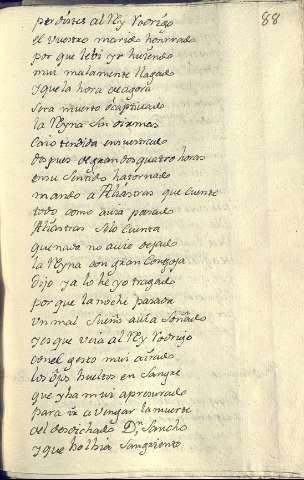 88
perdistes al Rey Rodrigo
el vuestro marido honrrado
por que le bi yr huiendo
mui malamente llagado
y que la hora de agora
sera muerto o captiuado
la Reyna sin oir mas
caio tendida en su estrado
despues de grandos quatro horas
en su sentido ha tornado
mando a Aliastras que cuente
todo como auia pasado
Aliastras se lo cuenta
que nada no auia dejado
la Reyna con gran congoja
dijo ya lo he yo tragado
por que la noche pasada
Un mal sueño auia soñado
y es que veia al Rey Rodrigo
con el gesto mui airado
los ojos bueltos en sangre
que yba mui apresurado
para ir a vengar la muerte
del desdichado D. Sancho
y que bolbia sangriento